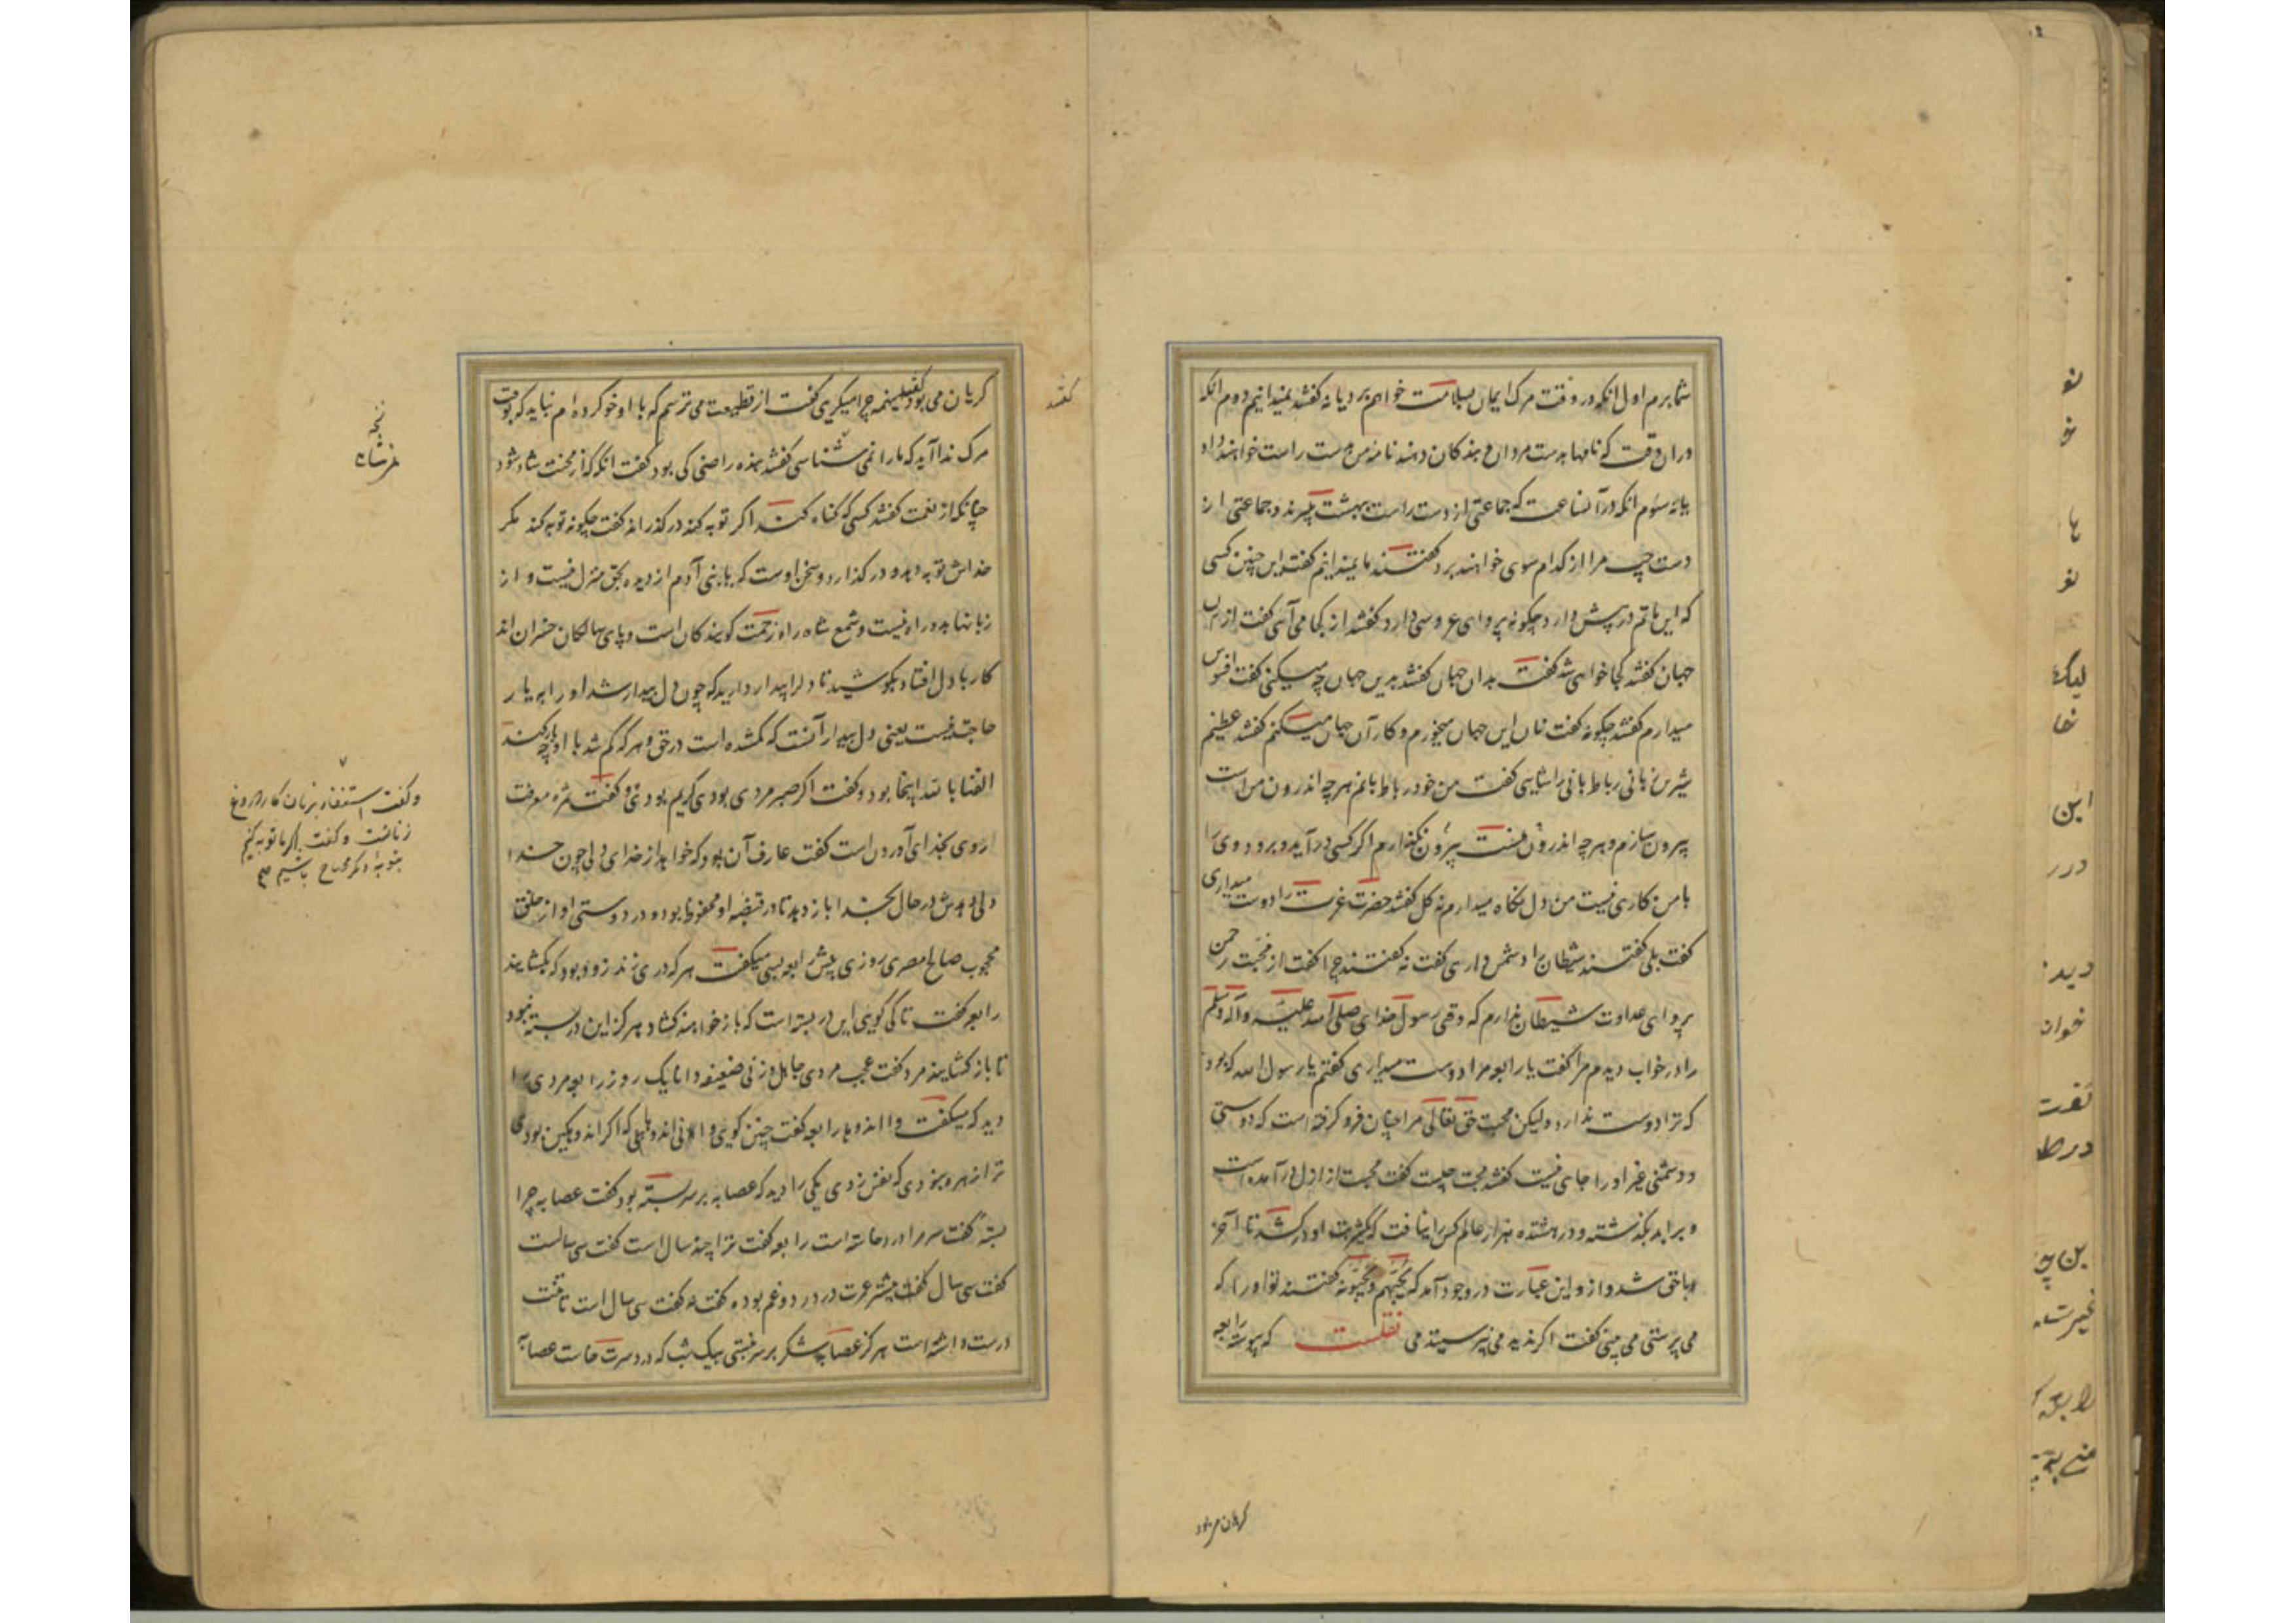 شما برم اول انکه در وقت مرک ایمان بسلامت خواهم برد یا نه کفتند نمیدانیم دوم انکه
در ان وقت که نامها بدست مردان و بندکان دهند نامه من بدست راست خواهند داد
یا نه سئوم انکه در آنساعت که جماعتی از دست راست ببهشت میبرند و جماعتی از
دست چپ مرا از کدام سوی خواهند برد کفتند ما نمیدانیم کفت این چنین کسی
که این ماتم در پیش دارد چکونه پروای عروسی دارد کفتند از کجا می آئی کفت از ان
جهان کفتند کجا خواهی شد کفت بدان جهان کفتند بدین جهان چه میکنی کفت افسوس
میدارم کفتند چکونه کفت نان این جهان میخورم و کار آن جهان میکنم کفتند عظیم
شیرین زبانی رباط بانی را شایی کفت من خود رباط بانم هر چه اندرون من است
بیرون نیارم و هر چه اندرون نیست بیرون نکذارم اکر کسی در آید و برود وی را
با من کاری نیست من دل نکاه میدارم نه کل کفتند حضرت عزت را دوست میداری
کفت بلی کفتند شیطان را دشمن داری کفت نه کفتند چرا کفت از محبت رحمن
پروای عداوت شیطان ندارم که وقتی رسول خدای صلی الله علیه و آله وسلم
را در خواب دیدم مرا کفت یا رابعه مرا دوست میداری کفتم یا رسول الله که بود
که ترا دوست ندارد ولیکن محبت حق تعالی مرا چنان فرو کرفته است که دوستی
و دشمنی غیر او را جای نیست کفتند محبت چیست کفت محبت از ازل در آمده است
و بر ابد بکذشته و در هشتده هزار عالم کس را نیافت که یکشربت او درکشد تا آخر
واحق شد و از و این عبارت در وجود آمد که یحبهم و یحبونه کفتند تو او را که
می پرستی می بینی کفت اکر ندیدمی نپرسیتدمی نقلست که پیوسته رابعه
کریان می بود
کریان می بود کفتند اینهمه چرا میکری کفت از قطیعت می ترسم که با او خو کرده ام نباید که بوقت
مرک ندا آید که ما را نمی شناسی کفتند بنده راضی کی بود کفت انکه که از محنت شاد شود
چنانکه از نعمت کفتند کسی که کناه کند اکر توبه کند در کذراند کفت چکونه توبه کند مکر
خداش توبه دهد و در کذارد و سخن اوست که یا بنی آدم از دیده بحق منزل نیست و از
زبانها بدو راه نیست و سمع شاه راه زحمت کویندکان است و پای سالکان حیران اند
کار با دل افتاد بکوشید تا دل را بیدار دارید که چون دل بیدار شد او را به یار
حاجت نیست یعنی دل بیدار آنست که کمشده است در حق و هر که کم شد با او یار چه کند
الفنا بالله اینجا بود و کفت اکر صبر مردی بودی کریم بودی و کفت ثمره معرفت
روی بخدای آوردن است کفت عارف آن بود که خواهد از خدای دلی چون خدا
دلی دهدش در حال بخدا باز دهد تا در قبضه او محفوظ بود و در دوستی او از خلق
محجوب صالح مصری روزی پیش رابعه بسی میکفت هر که دری زند زود بود که بکشایند
رابعه کفت تا کی کویی این در بسته است که باز خواهند کشاد هرکز این در بسته نبود
تا باز کشایند مرد کفت عجب مردی جاهل و زنی ضعیفه دانا یک روز رابعه مردی را
دید که میکفت وا اندوها رابعه کفت چنین کوی وا از بی اندوهی که اکر اندوهکین بودی
ترا زهره نبودی که نفس زدی یکی را دید که عصابه بر سر بسته بود کفت عصابه چرا
بسته کفت سرم درد خاسته است رابعه کفت ترا چند سال است کفت سی سالست
کفت سی سال کفت بیشتر عمرت در درد و غم بوده کفت نه کفت سی سال است تا تنت
درست داشته است هرکز عصابه شکر بر سر نبستی بیک شب که دردسرت خاست عصابه
کفتند
و کفت استغفار بزبان کار دروغ
زنانست و کفت اکر ما توبه کنیم
بتوبه دیکر محتاج باشیم
نو
ها
این
درر
دید
خوان